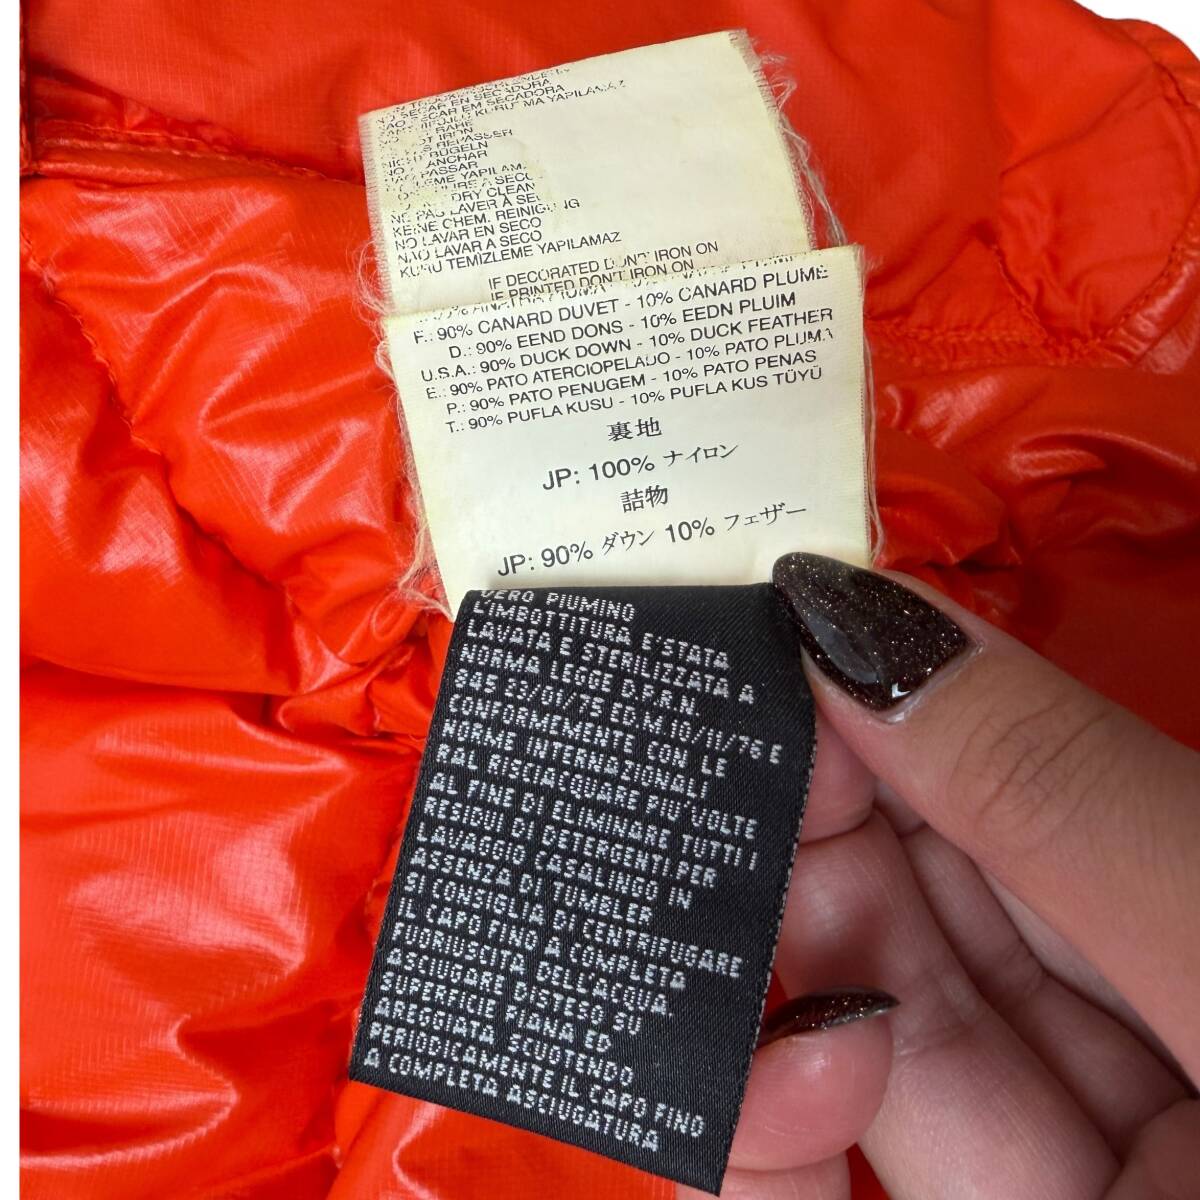 NO SECAR EN SECADORA
NÃO SECAR EM SECADORA
KURUTMA YAPILAMAZ
IRON
REPASSER
NICHT BÜGELN
NO PLANCHAR
NÃO PASSAR
YAPILAMAZ
A SECCO
DRY CLEAN
NE PAS LAVER À SEC
KEINE CHEM. REINIGUNG
NO LAVAR EN SECO
NÃO LAVAR A SECO
KURU TEMIZLEME YAPILAMAZ
IF DECORATED DON'T IRON ON
IF PRINTED DON'T IRON ON
F.: 90% CANARD DUVET - 10% CANARD PLUME
D.: 90% EEND DONS - 10% EEDN PLUIM
U.S.A.: 90% DUCK DOWN - 10% DUCK FEATHER
E.: 90% PATO ATERCIOPELADO - 10% PATO PLUMA
P.: 90% PATO PENUGEM - 10% PATO PENAS
T.: 90% PUFLA KUSU - 10% PUFLA KUS TÜYÜ
裏地
JP: 100% ナイロン
詰物
JP: 90% ダウン 10% フェザー
VERO PIUMINO
L'IMBOTTITURA E'STATA
LAVATA E STERILIZZATA A
NORMA LEGGE D.P.R.N.
845 23/01/75 ED.M.10/11/76 E
CONFORMEMENTE CON LE
NORME INTERNAZIONALI
RAL RISCIACQUARE PIU'VOLTE
AL FINE DI ELIMINARE TUTTI I
RESIDUI DI DETERGENTI.PER
LAVAGGIO CASALINGO IN
ASSENZA DI TUMBLER
SI CONSIGLIA DI CENTRIFUGARE
IL CAPO FINO A COMPLETA
FUORIUSCITA DELL'ACQUA.
ASCIUGARE DISTESO SU
SUPERFICIE PIANA ED
AREGGIATA SCUOTENDO
PERIODICAMENTE IL CAPO FINO
A COMPLETA ASCIUGATURA